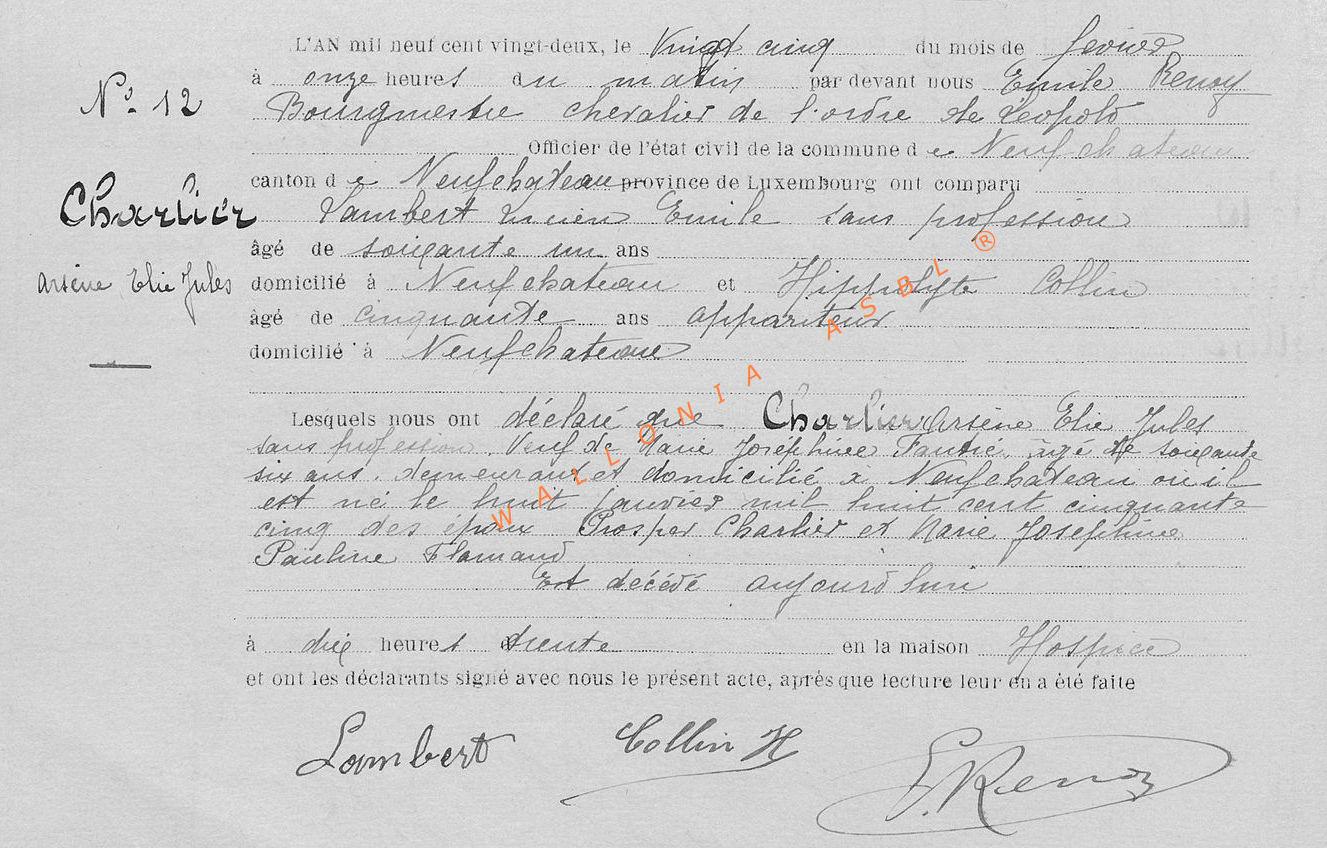 L'AN mil neuf cent vingt-deux, le Vingt cinq du mois de fevrier
à onze heures du matin par devant nous Emile Renoy
N° 12
Bourgmestre chevalier de l'ordre de Léopold
Officier de l'état civil de la commune de Neufchateau
canton de Neufchateau province de Luxembourg ont comparu
Charlier
Lambert Lucien Emile sans profession
âgé de soixante un ans
Arsène Elie Jules
domicilié à Neufchateau et Hippolyte Collin
âgé de cinquante ans appariteur
domicilié à Neufchateau
Lesquels nous ont déclaré que Charlier Arsène Elie Jules
sans profession. Veuf de Marie Joséphine âgé de soixante
six ans, demeurant et domicilié à Neufchateau où il
est né le huit janvier mil huit cent cinquante
cinq des époux Prosper Charlier et Marie Joséphine
Pauline Flamand
Est décédé aujourd hui
à dix heures trente en la maison Hospice
et ont les déclarants signé avec nous le présent acte, après que lecture leur en a été faite
Lambert Collin H E. Renoy
WALLONIA ASBL ®